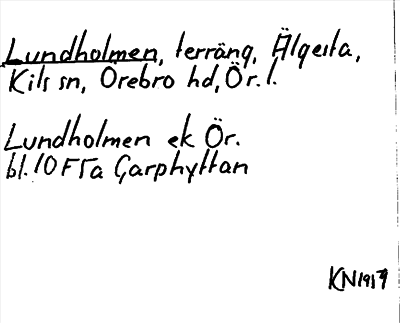 Lundholmen, terräng, Älgesta,
Kils sn, Örebro hd, Ör. l.
Lundholmen ek Ör.
bl. 10 F 5a Garphyttan